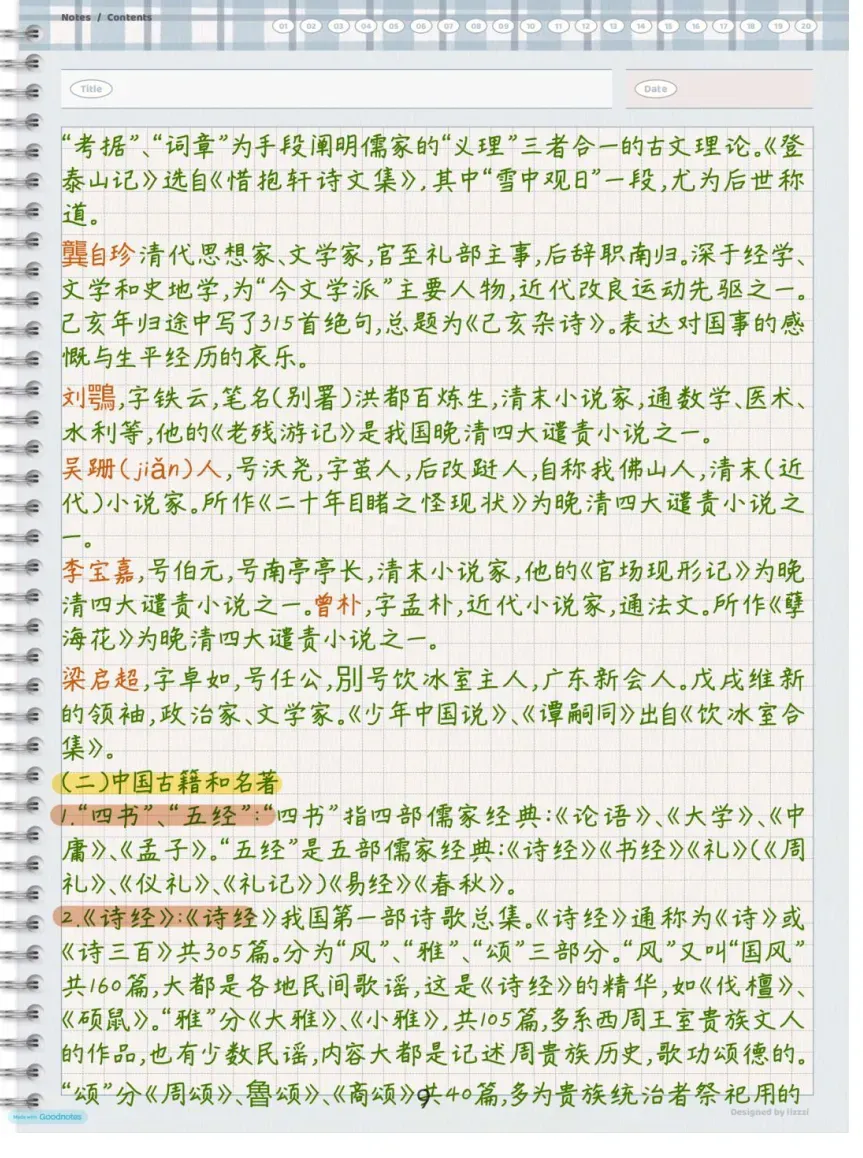 Notes / Contents
01 02 03 04 05 06 07 08 09 10 11 12 13 14 15 16 17 18 19 20
Title
Date
“考据”、“词章”为手段阐明儒家的“义理”三者合一的古文理论。《登
泰山记》选自《惜抱轩诗文集》,其中“雪中观日”一段,尤为后世称
道。
龔自珍清代思想家、文学家,官至礼部主事,后辞职南归。深于经学、
文学和史地学,为“今文学派”主要人物,近代改良运动先驱之一。
己亥年归途中写了315首绝句,总题为《己亥杂诗》。表达对国事的感
慨与生平经历的哀乐。
刘鶚,字铁云,笔名(别署)洪都百炼生,清末小说家,通数学、医术、
水利等,他的《老残游记》是我国晚清四大谴责小说之一。
吴趼(jiǎn)人,号沃尧,字茧人,后改趼人,自称我佛山人,清末(近
代)小说家。所作《二十年目睹之怪现状》为晚清四大谴责小说之
一。
李宝嘉,号伯元,号南亭亭长,清末小说家,他的《官场现形记》为晚
清四大谴责小说之一。曾朴,字孟朴,近代小说家,通法文。所作《孽
海花》为晚清四大谴责小说之一。
梁启超,字卓如,号任公,別号饮冰室主人,广东新会人。戊戌维新
的领袖,政治家、文学家。《少年中国说》、《谭嗣同》出自《饮冰室合
集》。
(二)中国古籍和名著
1.“四书”、“五经”:“四书”指四部儒家经典:《论语》、《大学》、《中
庸》、《孟子》。“五经”是五部儒家经典:《诗经》《书经》《礼》(《周
礼》、《仪礼》、《礼记》)《易经》《春秋》。
2.《诗经》:《诗经》我国第一部诗歌总集。《诗经》通称为《诗》或
《诗三百》共305篇。分为“风”、“雅”、“颂”三部分。“风”又叫“国风”
共160篇,大都是各地民间歌谣,这是《诗经》的精华,如《伐檀》、
《硕鼠》。“雅”分《大雅》、《小雅》,共105篇,多系西周王室贵族文人
的作品,也有少数民谣,内容大都是记述周贵族历史,歌功颂德的。
“颂”分《周颂》、魯颂》、《商颂》共40篇,多为贵族统治者祭祀用的
9
Made with Goodnotes
Designed by lizzzi